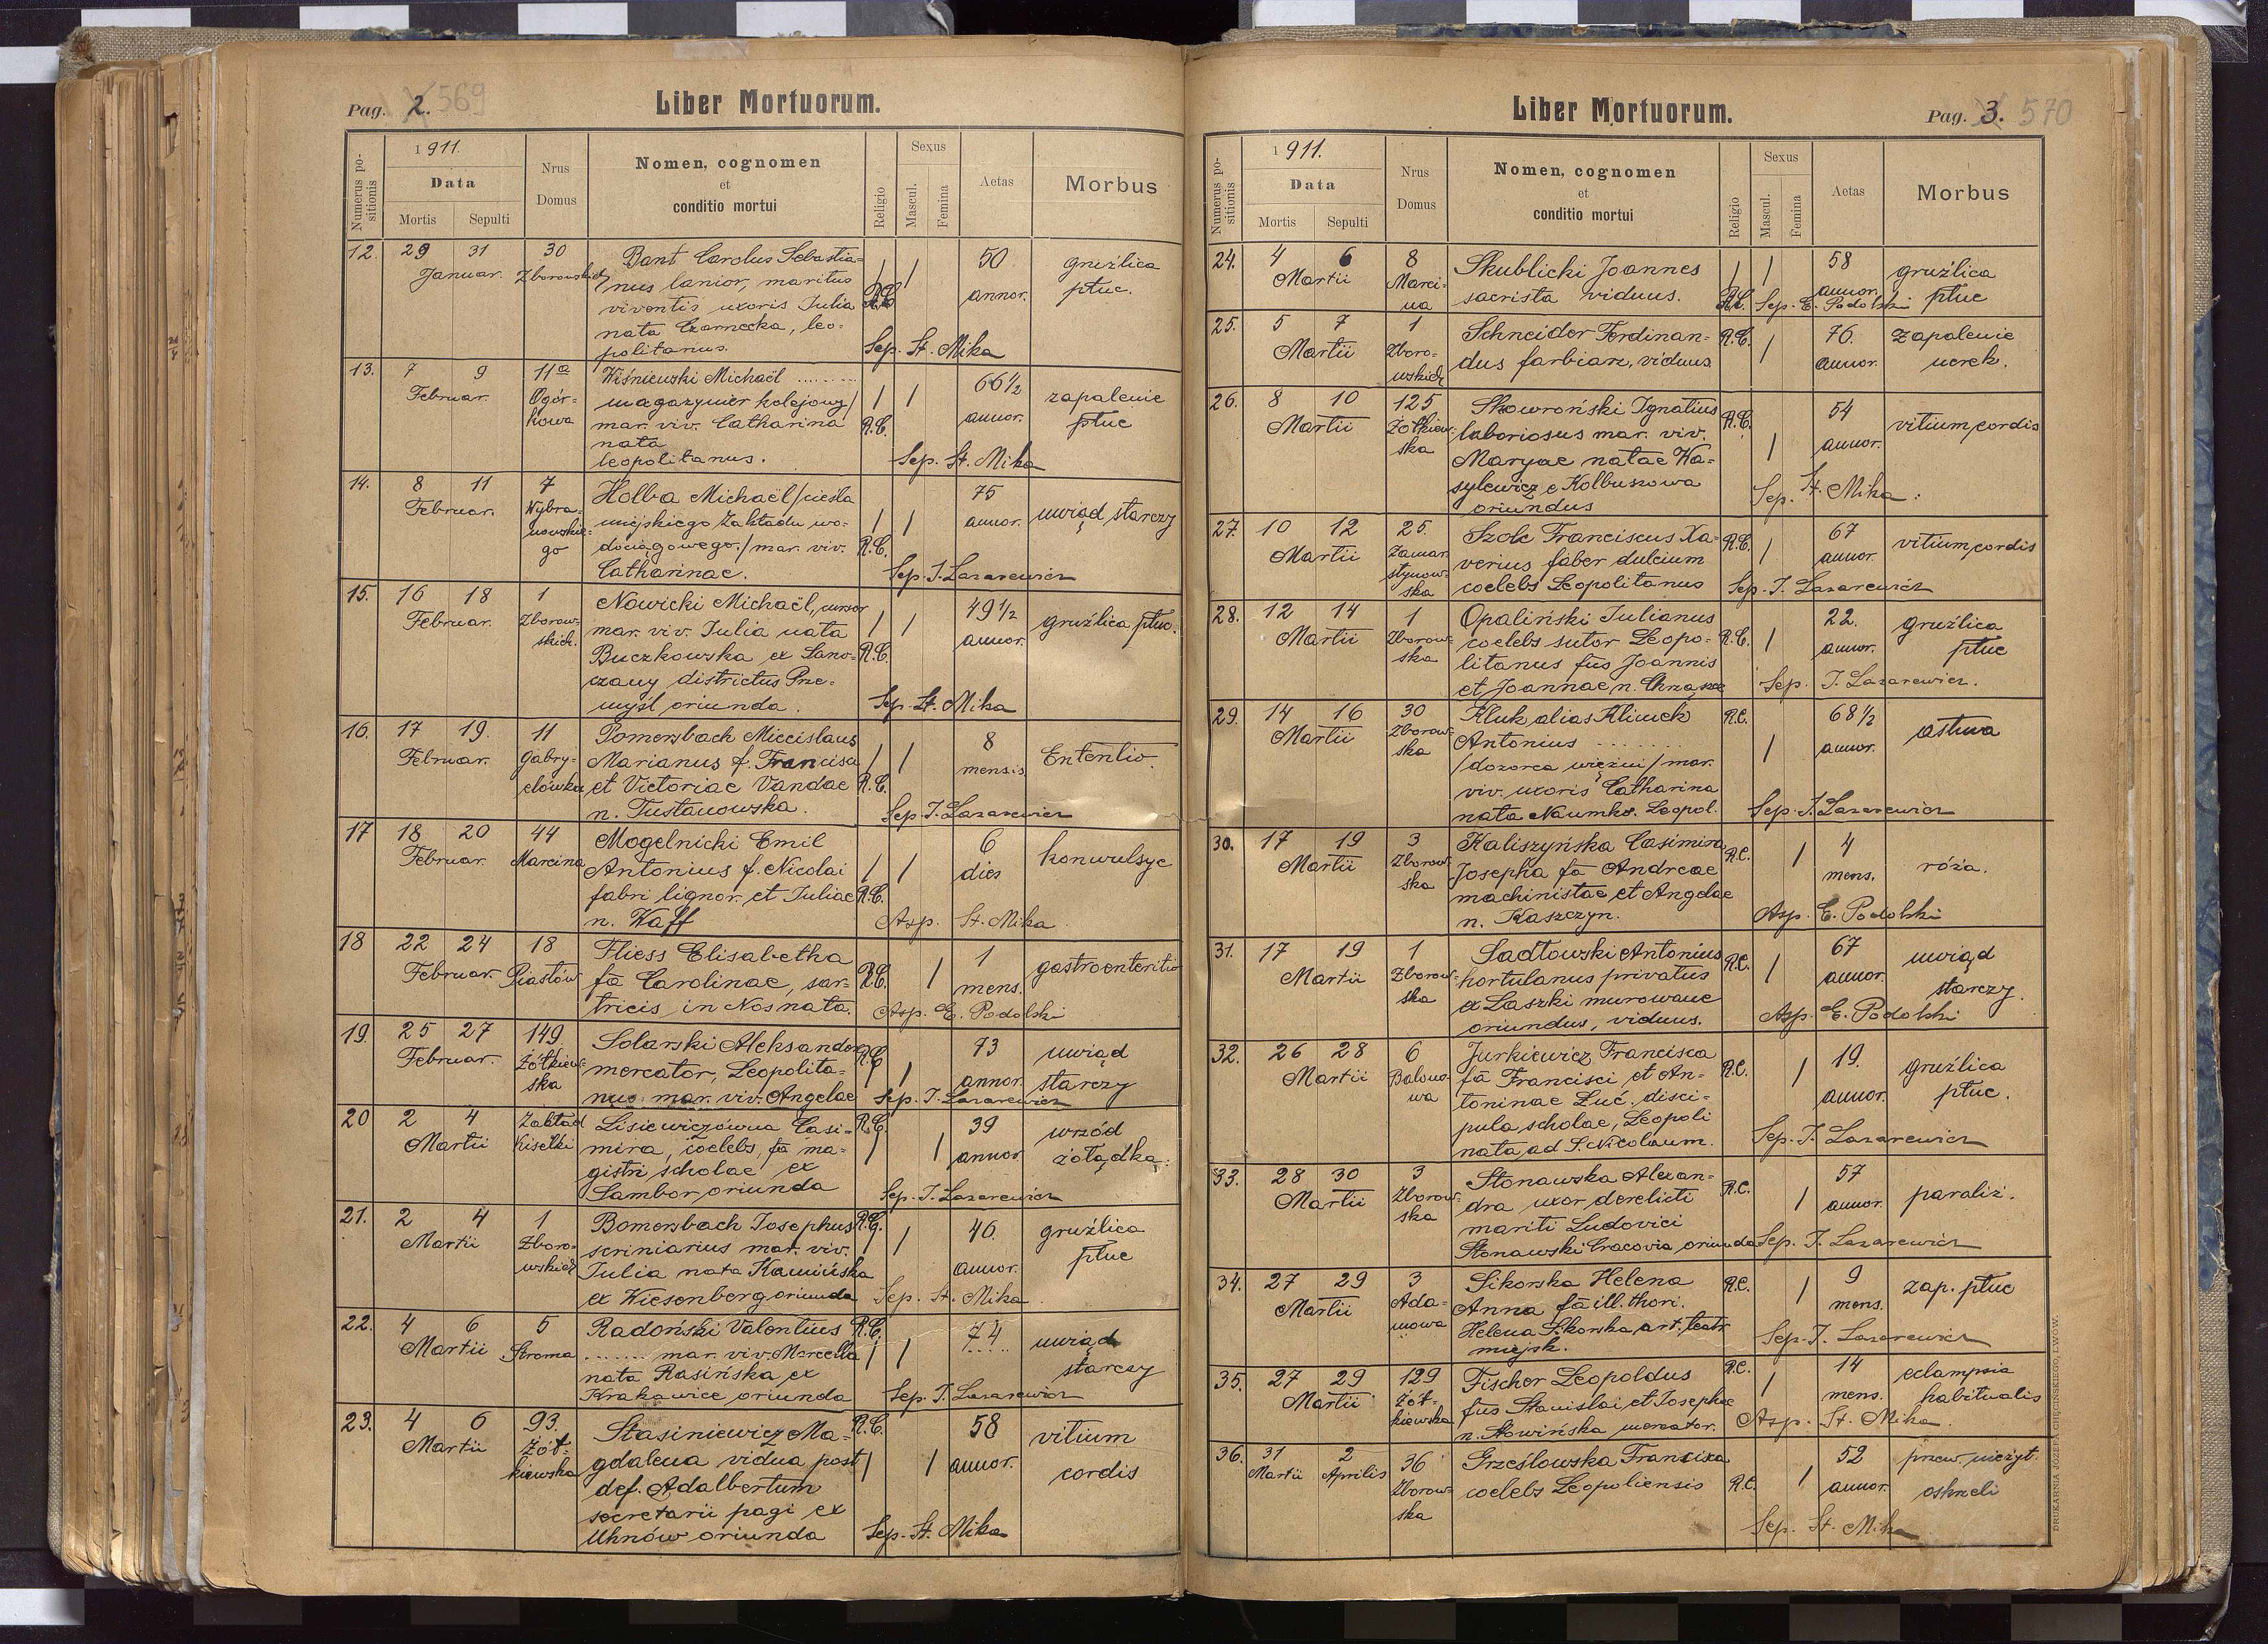 Pag. 2. 569
Liber Mortuorum.
Numerus positionis
1911.
Data
Mortis Sepulti
Nrus Domus
Nomen, cognomen
et
conditio mortui
Religio
Sexus
Mascul. Femina
Aetas
Morbus
12. 29 31 30 Bant Carolus Sebastia= 50 gruźlica
Januar. Zborowskich nus lanior, maritus annor. płuc.
viventis uxoris Julia R.C.
nata Czarnecka, leo=
politanus. Sep. St. Mika
13. 7 9 11a Wiśniewski Michaël ......... 66 1/2 zapalenie
Februar. Ogór= magazynier kolejowy/ annor. płuc
kowa mar. viv. Catharina R.C.
nata
leopolitanus. Sep. St. Mika
14. 8 11 7 Holba Michaël/cieśla 75 uwiąd starczy
Februar. Wybra= miejskiego Zakładu wo= annor.
nowskie= dociągowego./mar. viv. R.C.
go Catharinae. Sep. J. Lazarewicz
15. 16 18 1 Nowicki Michaël, cursor 49 1/2 gruźlica płuc.
Februar. Zborow= mar. viv. Julia nata annor.
skich. Buczkowska ex Sano= R.C.
czany districtus Prze=
myśl oriunda. Sep. St. Mika
16. 17 19. 11 Pomersbach Miecislaus 8
Februar. Gabry= Marianus f. Francisci mensis
elówka et Victoriae Vandae R.C.
n. Tustanowska. Sep. J. Lazarewicz
17 18 20 44 Mogelnicki Emil 6 konwulsye
Februar. Marcina Antonius f. Nicolai dies
fabri lignor. et Juliae R.C.
n. Kaff Asp. St. Mika
18 22 24 18 Fliess Elisabetha 1 gastroenteritis
Februar. Piastów fa Carolinae, sar= R.C. mens.
tricis in Nos nata. Asp. E. Podolski
19. 25 27 149 Solarski Aleksander R.C. 73 uwiąd
Februar. Żółkiew= mercator, Leopolita= annor. starczy
ska nus mar. viv. Angelae Sep. J. Lazarewicz
20 2 4 Zakład Lisiewiczówna Casi= R.C. 39 wrzód
Martii Kisełki mira, coelebs, fa ma= annor. żołądka.
gistri scholae, ex
Sambor oriunda Sep. J. Lazarewicz
21. 2 4 1 Bomersbach Josephus R.C. 46. gruźlica
Martii Zboro= scriniarius mar. viv. annor. płuc
wskich Julia nata Kamińska
ex Wiesenberg oriunda Sep. St. Mika
22. 4 6 5 Radoński Valentius R.C. 74 uwiąd
Martii Stroma ....... mar. viv. Marcella starczy
nata Rasińska ex
Krakowice oriunda Sep. J. Lazarewicz
23. 4 6 93. Stasiniewicz Ma= R.C. 58 vitium
Martii Żół= gdalena vidua post annor. cordis
kiewska def. Adalbertum
secretarii pagi ex
Uhnów oriunda Sep. St. Mika
Liber Mortuorum.
Pag. 3. 570
Numerus positionis
1911.
Data
Mortis Sepulti
Nrus Domus
Nomen, cognomen
et
conditio mortui
Religio
Sexus
Mascul. Femina
Aetas
Morbus
24. 4 6 8 Skublicki Joannes 58 gruźlica
Martii Marci= sacrista viduus. R.C. annor. płuc
na Sep. E. Podolski
25. 5 7 1 Schneider Ferdinan= R.C. 76. zapalenie
Martii Zboro= dus farbiarz, viduus. annor. nerek.
wskich
26. 8 10 125 Skowroński Ignatius R.C. 54 vitium cordis
Martii Żółkiew= laboriosus mar. viv. annor.
ska Maryae natae Wa=
sylewicz e Kolbuszowa Sep. St. Mika.
oriundus
27. 10 12 25. Szolc Franciscus Xa= R.C. 67 vitium cordis
Martii Zamar= verius faber dulcium annor.
stynow= coelebs Leopolitanus Sep. J. Lazarewicz
ska
28. 12 14 1 Opaliński Julianus 22. gruźlica
Martii Zborow= coelebs sutor Leopo= R.C. annor. płuc
ska litanus fus Joannis
et Joannae n. Chrząszcz Sep. J. Lazarewicz.
29. 14 16 30 Kluk alias Klimek R.C. 68 1/2 astma
Martii Zborow= Antonius ........ annor.
ska /dozorca więźni/ mar.
viv. uxoris Catharina
nata Naumko. Leopol. Sep. J. Lazarewicz
30. 17 19 3 Kaliszyńska Casimira R.C. 4 róża.
Martii Zborow= Josepha fa Andreae mens.
ska machinistae et Angelae
n. Kaszczyn. Asp. E. Podolski
31. 17 19 1 Sadłowski Antonius R.C. 67 uwiąd
Martii Zborow= hortulanus privatus annor. starczy.
ska ex Laszki murowane
oriundus, viduus. Asp. E. Podolski
32. 26 28 6 Jurkiewicz Francisca 19. gruźlica
Martii Balono= fa Francisci et An= R.C. annor. płuc.
wa toninae Łuć. disci=
pula scholae, Leopoli
nata ad S. Nicolaum. Sep. J. Lazarewicz
33. 28 30 3 Stonawska Alexan= R.C. 57 paraliż.
Martii Zborow= dra uxor derelicti annor.
ska mariti Ludovici
Stonawski Cracovia oriunda Sep. J. Lazarewicz
34. 27 29 3 Sikorska Helena R.C. 9 zap. płuc
Martii Ada= Anna fa ill. thori. mens.
mowa Helena Sikorska art. teatr.
miejsk. Sep. J. Lazarewicz
35. 27 29 129 Fischer Leopoldus R.C. 14 eclampsia
Martii Żół= fus Stanislai et Josephae mens. habitualis
kiewska n. Słowińska mercator. Asp. St. Mika.
36. 31 2 36 Grześlowska Francisca 52 przew. nieżyt.
Martii Aprilis Zborow= coelebs Leopoliensis R.C. annor. oskrzeli
ska Sep. St. Mika
DRUKARNIA JÓZEFA CHĘCIŃSKIEGO, LWÓW.